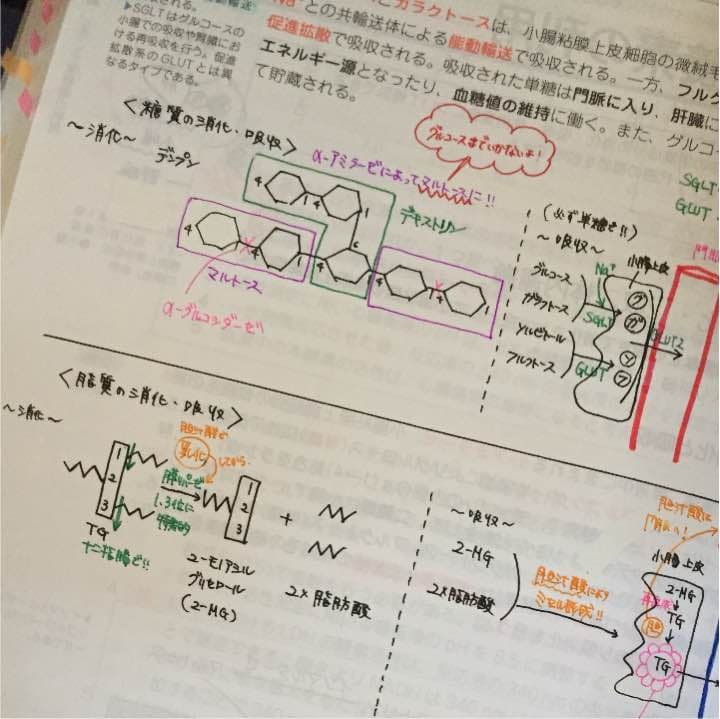 ▶SGLTはグルコースの
小腸での吸収や腎臓にお
ける再吸収を行う。促進
拡散系のGLUTとは異
なるタイプである。
とガラクトースは、小腸粘膜上皮細胞の微絨毛
Na⁺との共輸送体による能動輸送で吸収される。一方、フルク
促進拡散で吸収される。吸収された単糖は門脈に入り、肝臓に
エネルギー源となったり、血糖値の維持に働く。また、グルコー
て貯蔵される。
<糖質の消化・吸収>
〜消化〜
デンプン
グルコースまでいかないよ!
α-アミラーゼによってマルトースに!!
デキストリン
4 1 4 1
6
4 1 4 1 4 1 4 1 4 1
マルトース
α-グルコシダーゼ
SGLT
GLUT
(必ず単糖で!!)
〜吸収〜
小腸上皮
門脈
グルコース
ガラクトース
Na⁺
SGLT
ソルビトール
フルクトース
GLUT
グ
ガ
ソ
フ
GLUT2
<脂質の消化・吸収>
〜消化〜
胆汁酸で
乳化
しながら
1
2
3
TG
十二指腸で!!
膵リパーゼ
1,3位に
特異的
1
2
3
+
2-モノアシル
グリセロール
(2-MG)
2×脂肪酸
〜吸収〜
2-MG
2×脂肪酸
胆汁酸により
ミセル形成!!
胆汁酸は
小腸上皮
2-MG
TG
胆
TG